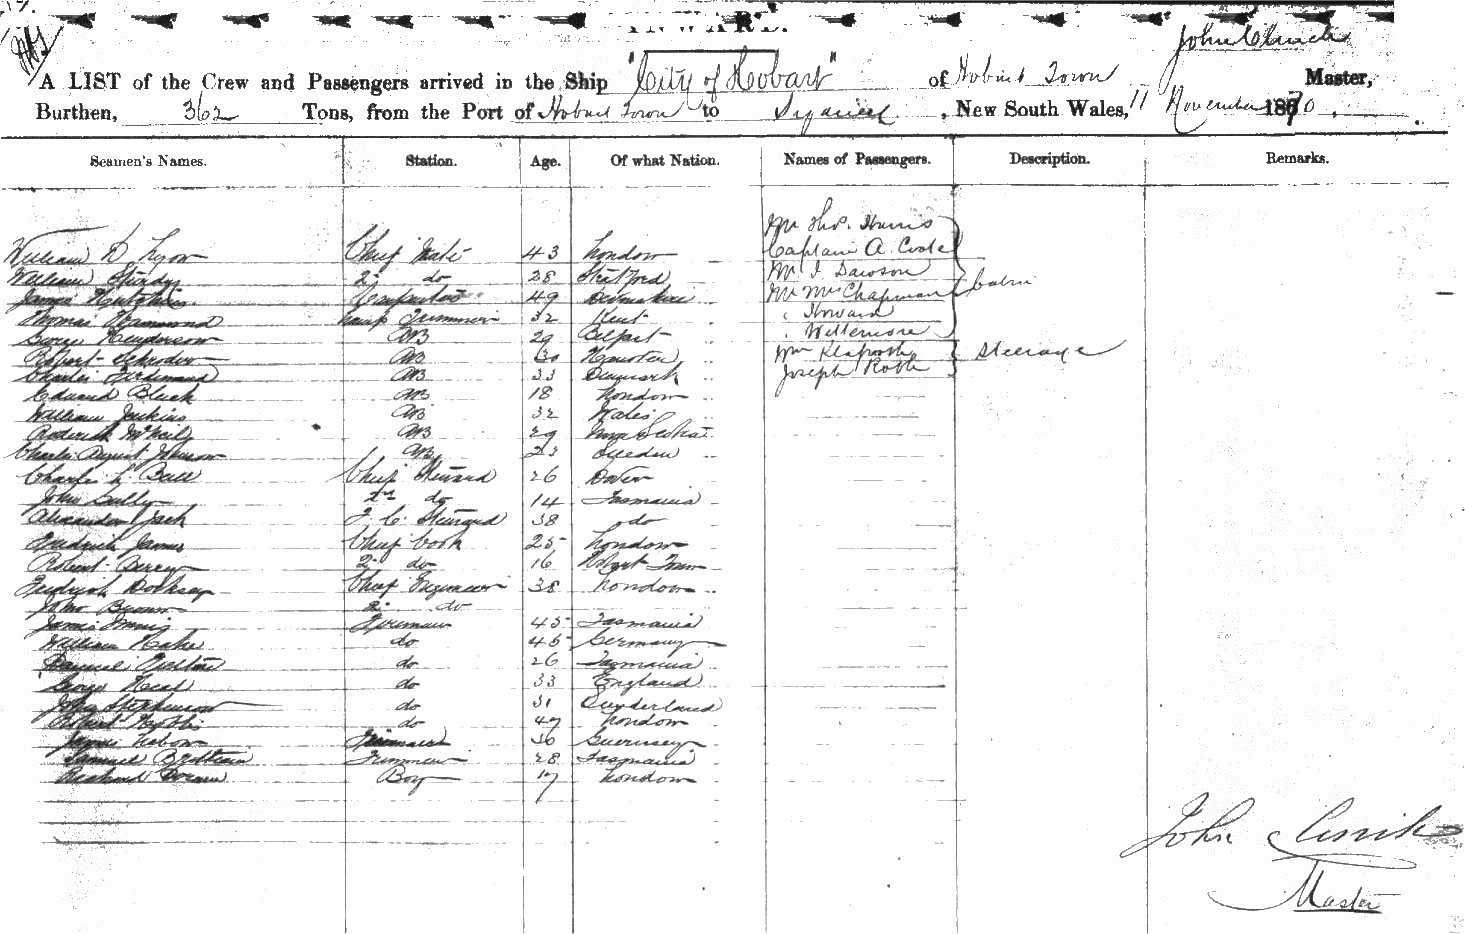 INWARD.
John Clinch
A LIST of the Crew and Passengers arrived in the Ship "City of Hobart" of Hobart Town Master,
Burthen, 362 Tons, from the Port of Hobart Town to Sydney, New South Wales, 11 November 1870.
Seamen's Names. Station. Age. Of what Nation. Names of Passengers. Description. Remarks.
Mr Thos. Harris
William D Lyon Chief Mate 43 London Captain A. Cook
William Sturdy 2 do 28 Stratford Mr J. Dawson Cabin
James 49 Devonshire Mr Mrs Chapman
Thomas Hammond Lamp Trimmer 32 Kent " Howard
George Henderson AB 29 Belfast " Wittemore
Robert Schroder AB 30
Steerage
Charles Ferdinand AB 33 Denmark Joseph
Edward Black AB 18 London
William Jenkins AB 32 Wales
Roderick McNeily AB 29 Nova Scotia
Charles August Johnson AB 23 Sweden
Charles L. Ball Chief Steward 26 Dover
John Sully 2nd do 14 Tasmania
Alexander Jack F. C. Steward 38 do
Fredrick James Chief Cook 25 London
Robert Berry 2 do 16 Hobart Town
Fredrick Dorksey Chief Engineer 38 London
John Brown 2 do
James Innis Fireman 45 Tasmania
William Hake do 45 Germany
Daniel do 26 Tasmania
George Neal do 33 England
John Stephenson do 31 Sunderland
Robert do 47 London
James Lebon 30 Guernsey
Samuel Trimmer 28 Tasmania
Richard Boy 17 London
John Clinch
Master